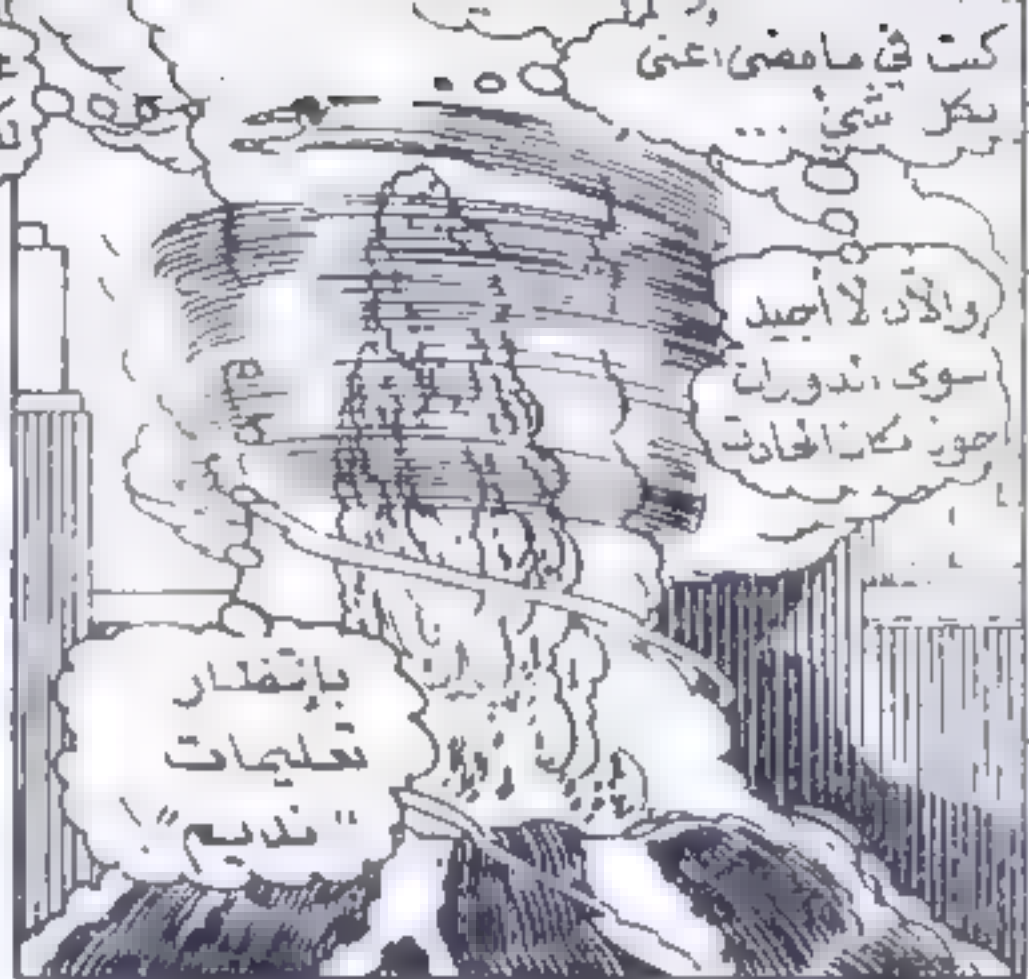 كنت في ما مضى اعنى
بكل شيئ ...
والآن لا أجيد
سوى الدوران
حول
بإنتظار
تعليمات
"نديم"